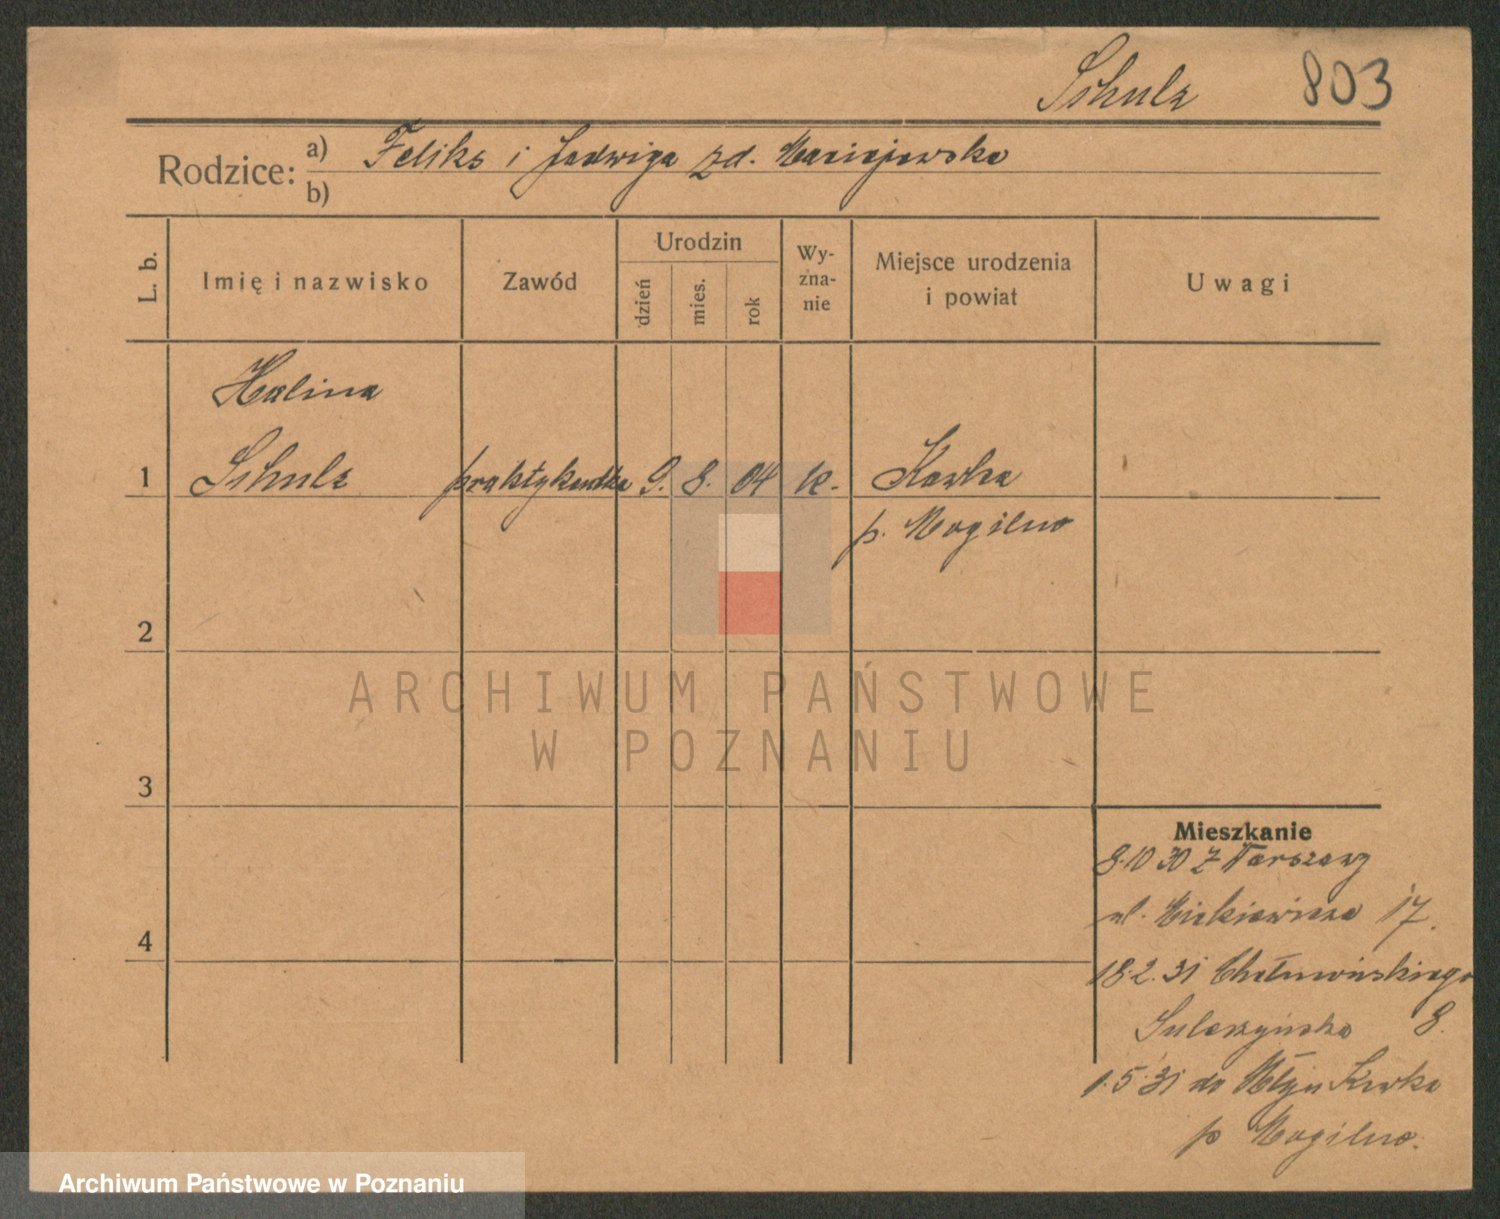 Schulz 803
Rodzice: a) Feliks i Jadwiga zd. Maciejewska
b)
L. b. Imię i nazwisko Zawód Urodzin dzień mies. rok Wy-zna-nie Miejsce urodzenia i powiat Uwagi
Halina
1 Schulz praktykantka 9. 8. 04 k. Kawka
p. Mogilno
2
ARCHIWUM PAŃSTWOWE
W POZNANIU
3
Mieszkanie
8.10 30 z Warszawy
ul. Mickiewicza 17.
4
18.2.31 Chełmońskiego
8.
1.5.31 do Młyn Kawka
p Mogilno.
Archiwum Państwowe w Poznaniu